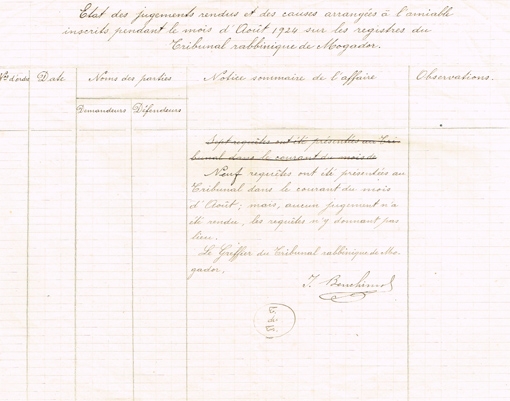 Etat des jugements rendus et des causes arrangées à l'amiable
inscrits pendant le mois d'Août 1924 sur les registres du
Tribunal rabbinique de Mogador.
Nos d'ordre Date Noms des parties Notice sommaire de l'affaire Observations.
Demandeurs Défendeurs
Sept requêtes ont été présentées au Tri-
bunal dans le courant du mois de
Neuf requêtes ont été présentées au
Tribunal dans le courant du mois
d'Août; mais, aucun jugement n'a
été rendu, les requêtes n'y donnant pas
lieu.
Le Greffier du Tribunal rabbinique de Mo-
gador,